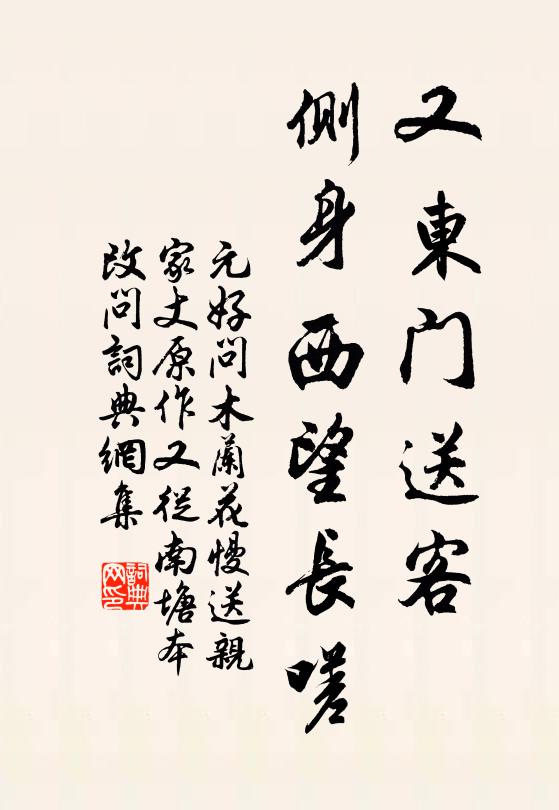 又東門送客
側身西望長嗟
元好問木蘭花慢送親
家丈原作又從南塘本
改問詞典網集
詞典网印